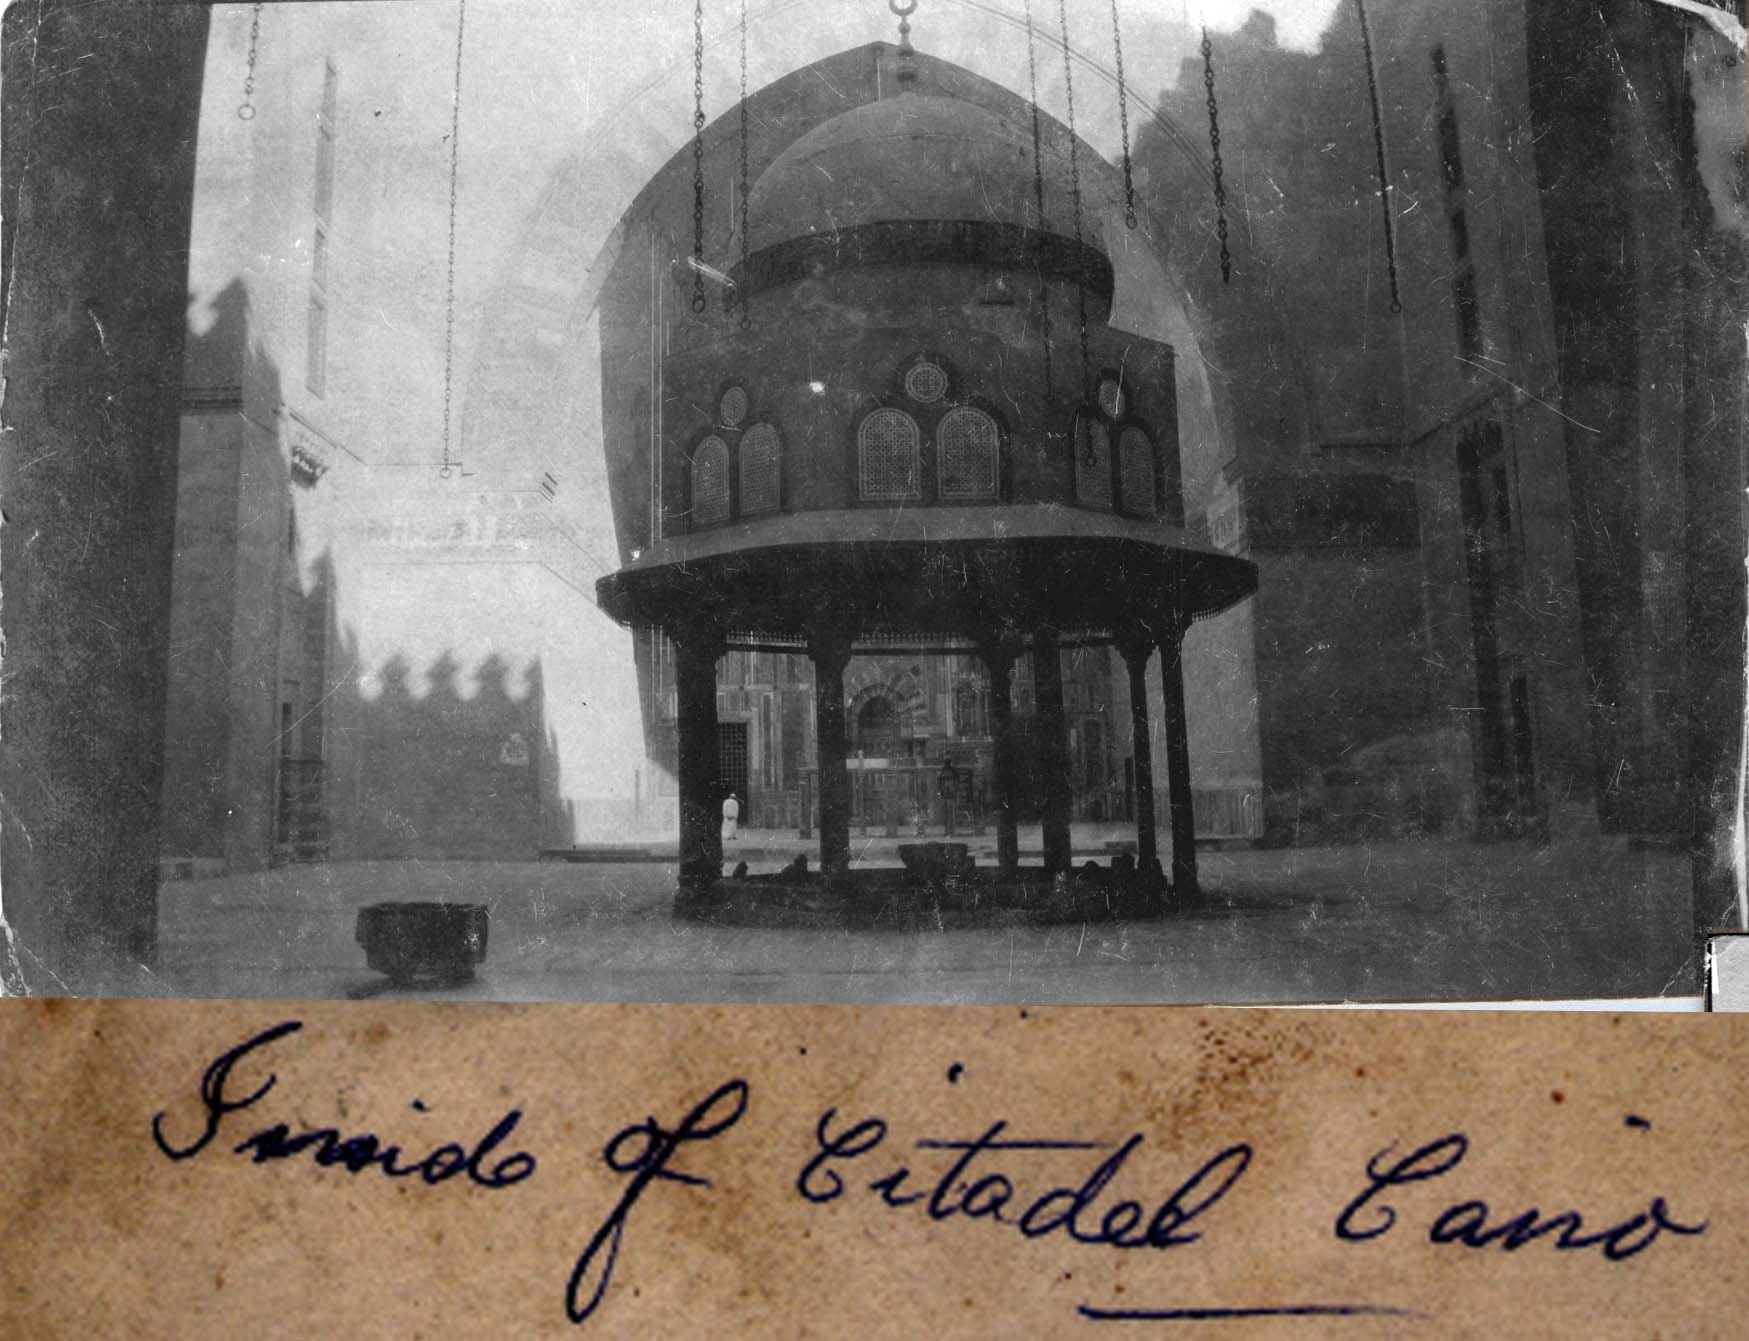 Inside of Citadel Cairo